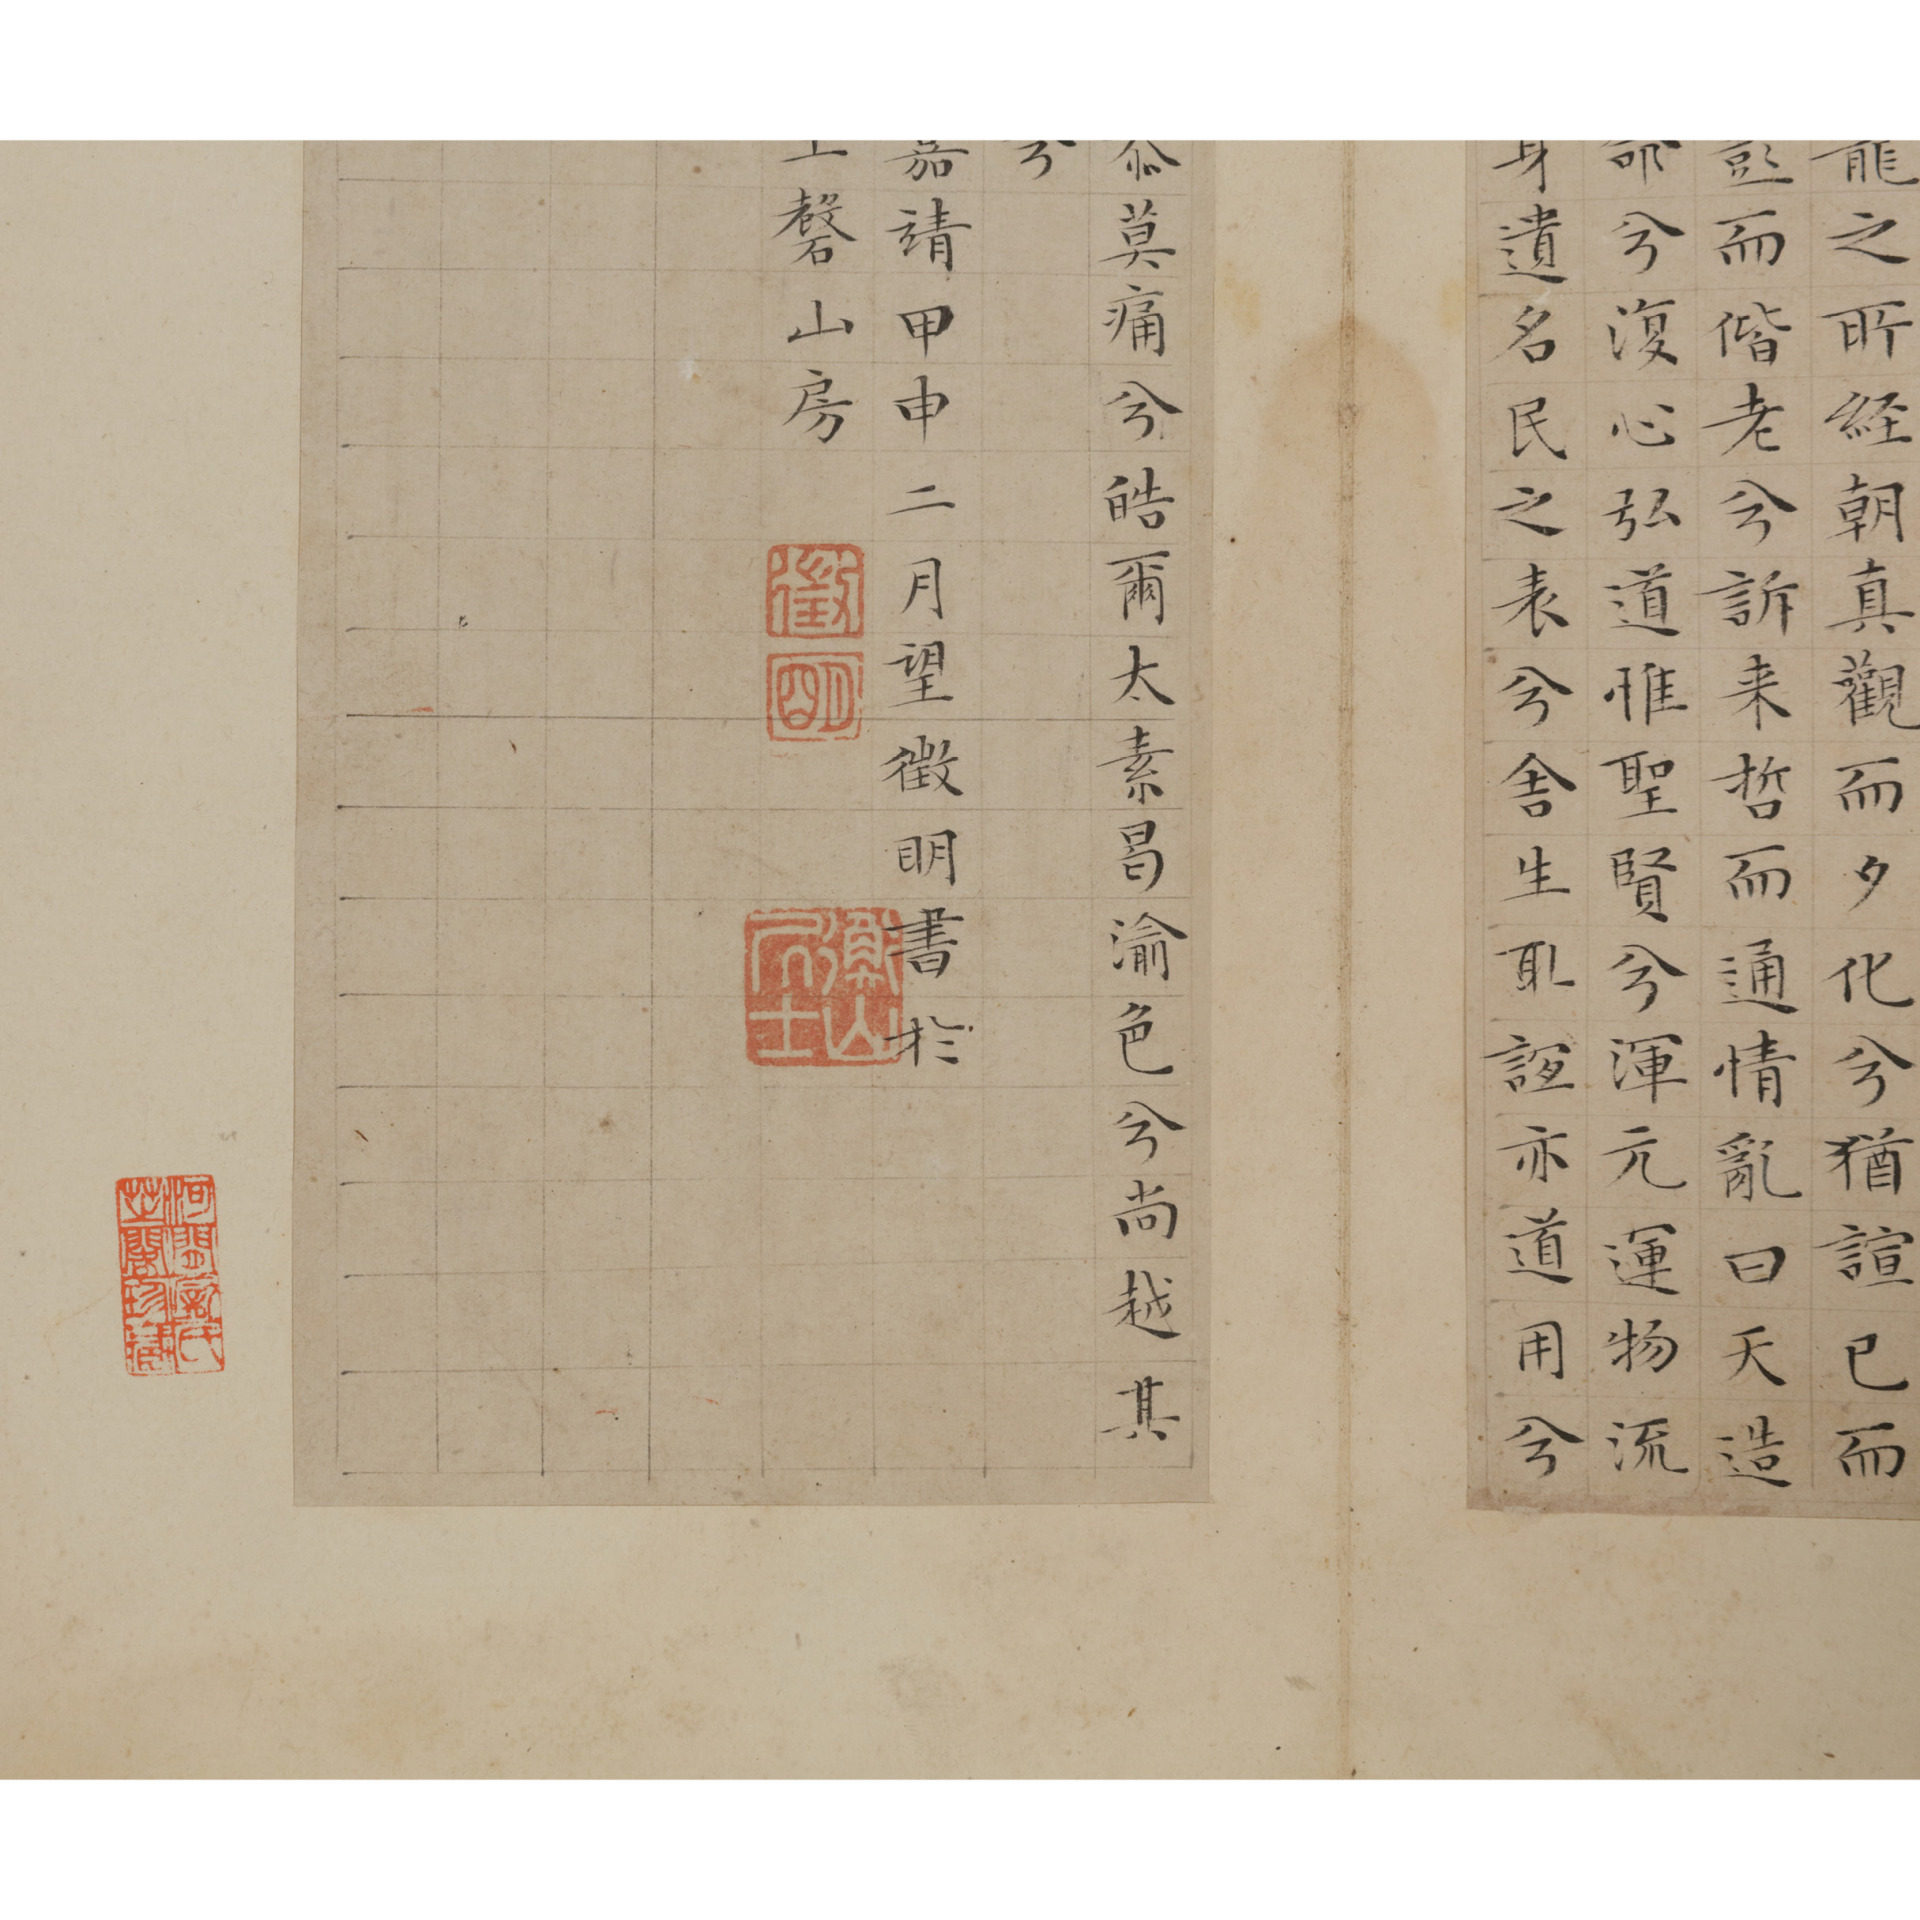 龍之所経朝真觀而夕化兮猶諠已而
而偕老兮訴来哲而通情亂曰天造
兮復心弘道惟聖賢兮渾元運物流
身遺名民之表兮舍生取誼亦道用兮
忝莫痛兮皓爾太素曷渝色兮尚越其
兮
嘉靖甲申二月望徵明書於
玉磬山房
徵
明
衡山
居士
河間龐氏
芷閣珍藏